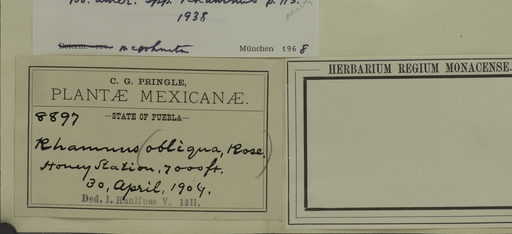 amer. spp. Rhamnus p. 113.
1938
Determ. rev. München 1968
C. G. PRINGLE,
PLANTÆ MEXICANÆ.
8897
—STATE OF PUEBLA—
Rhamnus (obliqua, Rose.)
Honey Station, 7000 ft.
30, April, 1904.
Ded. I. Kaulfuss V. 1911.
HERBARIUM REGIUM MONACENSE.